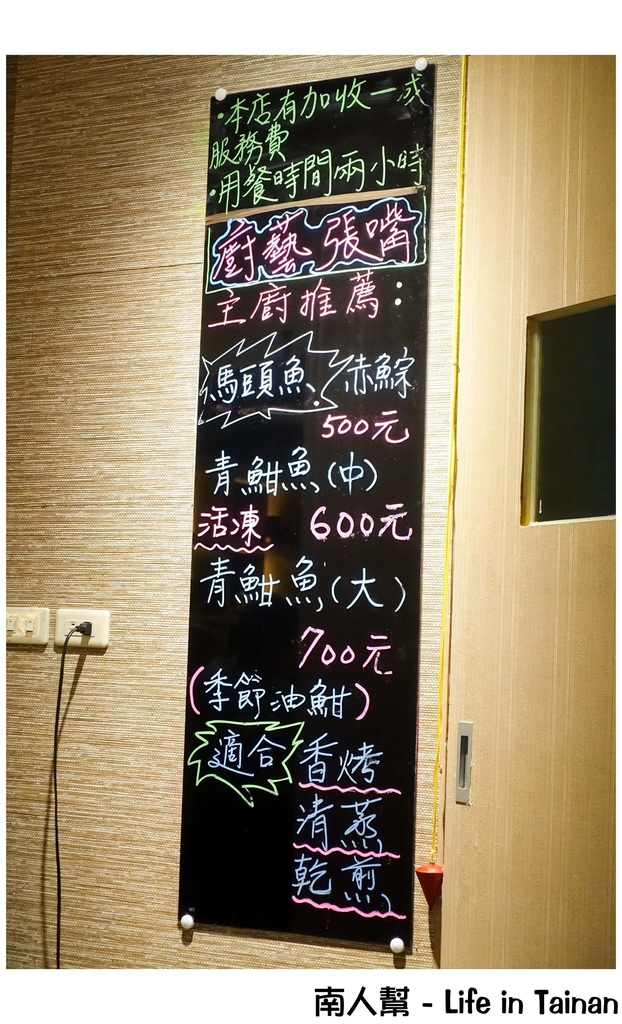 ·本店有加收一成
服務費
·用餐時間兩小時
廚藝張嘴
主廚推薦：
馬頭魚 赤鯮
500元
青魽魚(中)
活凍 600元
青魽魚(大)
700元
(季節油魽)
適合 香烤
清蒸
乾煎
南人幫 - Life in Tainan